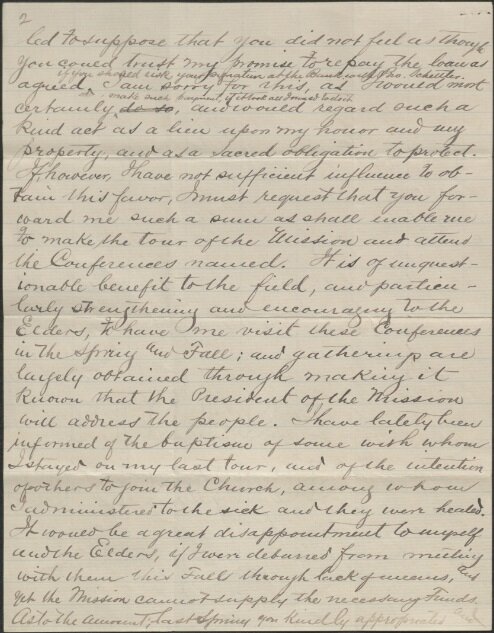 2
led to suppose that you did not feel as though
you could trust my promise to repay the loan as
if you should risk your reputation at the Bank with Bro. Schettler.
agreed. I am sorry for this, as I would most
make such payment, if it took all I owned to do it
certainly do so, and would regard such a
kind act as a lien upon my honor and my
property, and as a sacred obligation to protect.
If however, I have not sufficient influence to ob-
tain this favor, I must request that you for-
ward me such a sum as shall enable me
to make the tour of the Mission and attend
the Conferences named. It is of unquest-
ionable benefit to the field, and particu-
larly strengthening and encouraging to the
Elders, to have me visit these Conferences
in the Spring and Fall; and gatherings are
largely obtained through making it
known that the President of the Mission
will address the people. I have lately been
informed of the baptism of some with whom
I stayed on my last tour, and of the intention
of others to join the Church, among whom
I administered to the sick and they were healed.
It would be a great disappointment to myself
and the Elders, if I were debarred from meeting
with them this Fall through lack of means, and
yet the Mission cannot supply the necessary funds.
As to the amount, last Spring you kindly appropriated